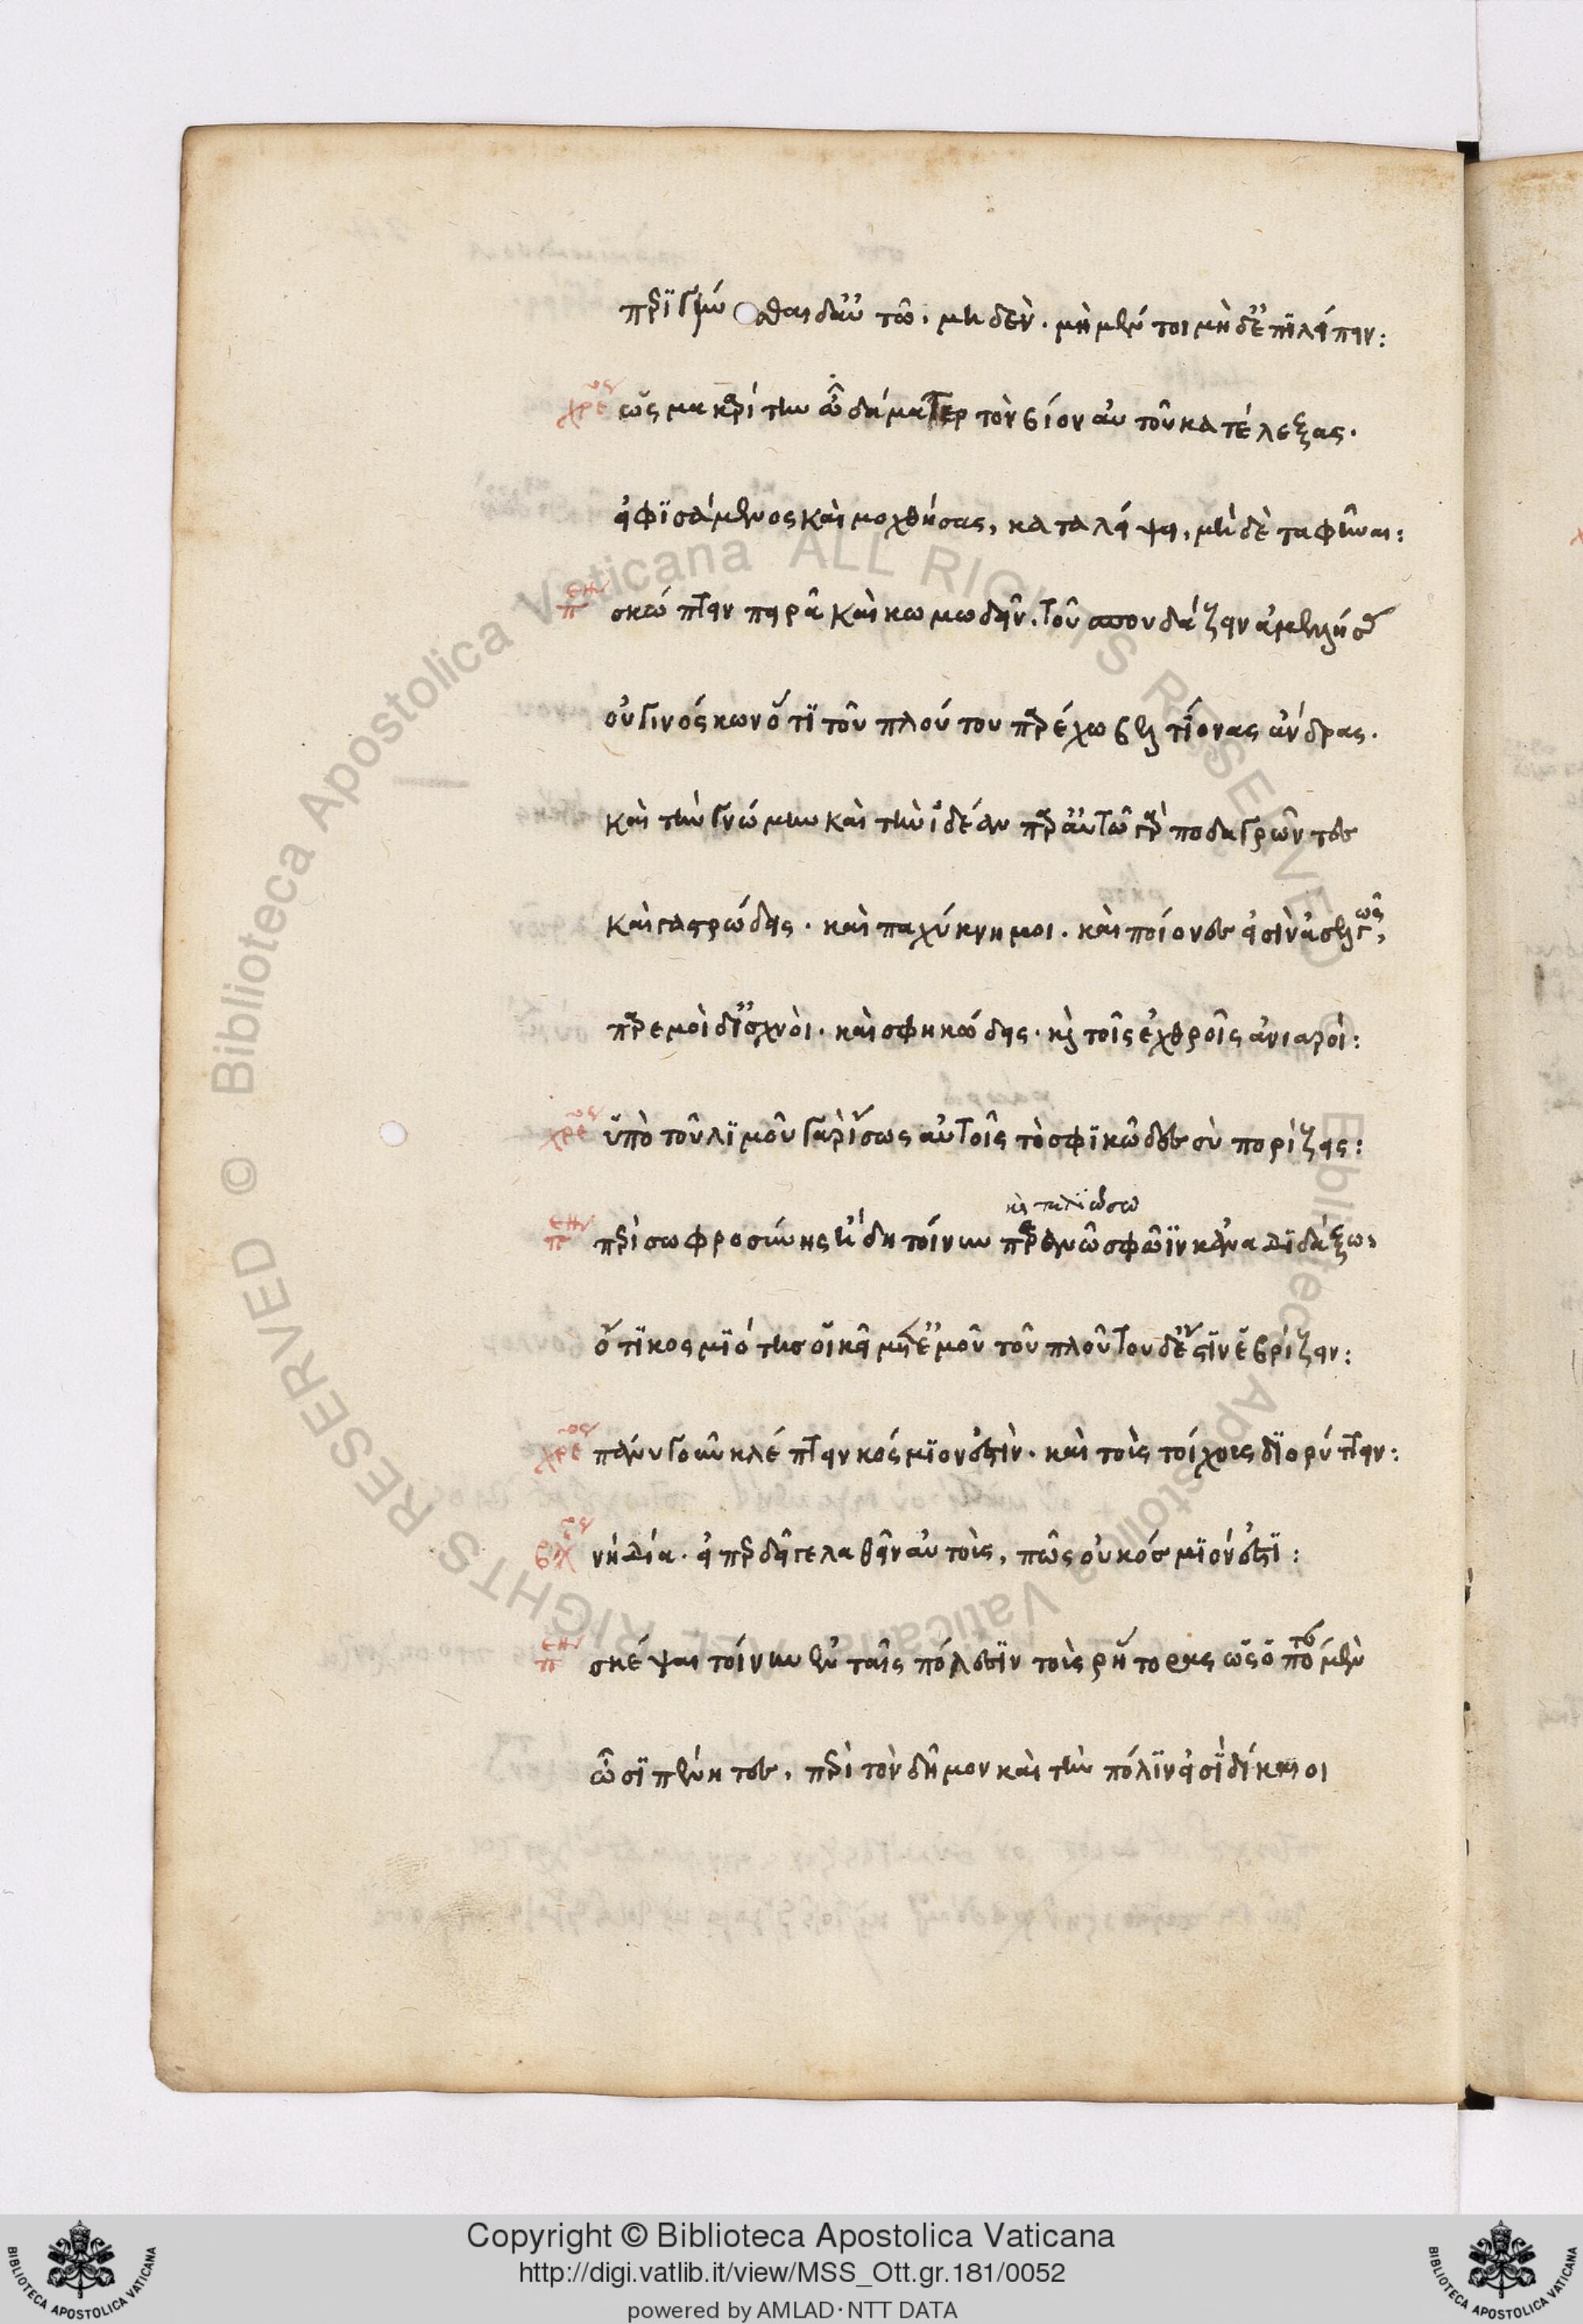 περιγίνεσθαι δ' αὐτῶ· μηδὲν· μὴ μέντοι μὴ δ' ἐπιλείπειν:
χρε ὡς μακαρίτην ὦ δάματερ τὸν βίον αὐτοῦ κατέλεξας.
εἰ φισάμενος καὶ μοχθήσας, καταλείψει, μηδὲ ταφῆναι:
πεν σκώπτειν πειρᾶ καὶ κωμωδεῖν. τοῦ σπουδάζειν ἀμελήσας
οὐ γινόσκων ὅτι τοῦ πλούτου παρέχω βελτίονας ἄνδρας.
καὶ τὴν γνώμην καὶ τὴν ἰδέαν παρ' αὐτῶ γὰρ ποδαγρῶντες
καὶ γαστρώδεις. καὶ παχύκνημοι. καὶ πίονες εἰσὶν ἀσελγῶς,
παρ' ἐμοὶ δ' ἰσχνοὶ. καὶ σφηκώδεις. καὶ τοῖς ἐχθροῖς ἀνιαροὶ:
χρε ὑπὸ τοῦ λιμοῦ γὰρ ἴσως αὐτοῖς τὸ σφικῶδες σὺ πορίζεις:
πεν περὶ σωφροσύνης ἤδη τοίνυν περανῶ σφῶϊν κἀναδιδάξω,
ὅτι κοσμιότης οἰκεῖ μετ' ἐμοῦ τοῦ πλούτου δ' ἐστὶν ὑβρίζειν:
χρε πάνυ γοῦν κλέπτειν κόσμιον ἐστὶν. καὶ τοὺς τοίχους διορύττειν:
βλ νὴ δία. εἰ περ δεῖ γε λαθεῖν αὐτοὺς, πῶς οὐ κόσμιόν ἐστι:
πεν σκέψαι τοίνυν ἐν ταῖς πόλεσιν τοὺς ῥήτορας ὡς ὁπότε μὲν
ὦσι πένητες, περὶ τὸν δῆμον καὶ τὴν πόλιν εἰσὶ δίκαιοι
© Biblioteca Apostolica Vaticana ALL RIGHTS RESERVED
Copyright © Biblioteca Apostolica Vaticana
http://digi.vatlib.it/view/MSS_Ott.gr.181/0052
powered by AMLAD·NTT DATA
BIBLIOTECA APOSTOLICA VATICANA
BIBLIOTECA APOSTOLICA VATICANA